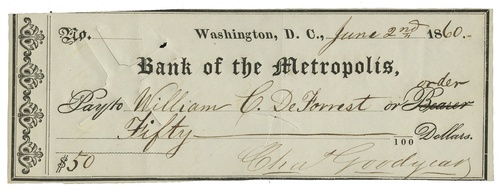 No. Washington, D. C., June 2nd 1860.
Bank of the Metropolis,
order
Pay to William C. DeForrest or Bearer
Fifty 100 Dollars.
$50 Chas Goodyear